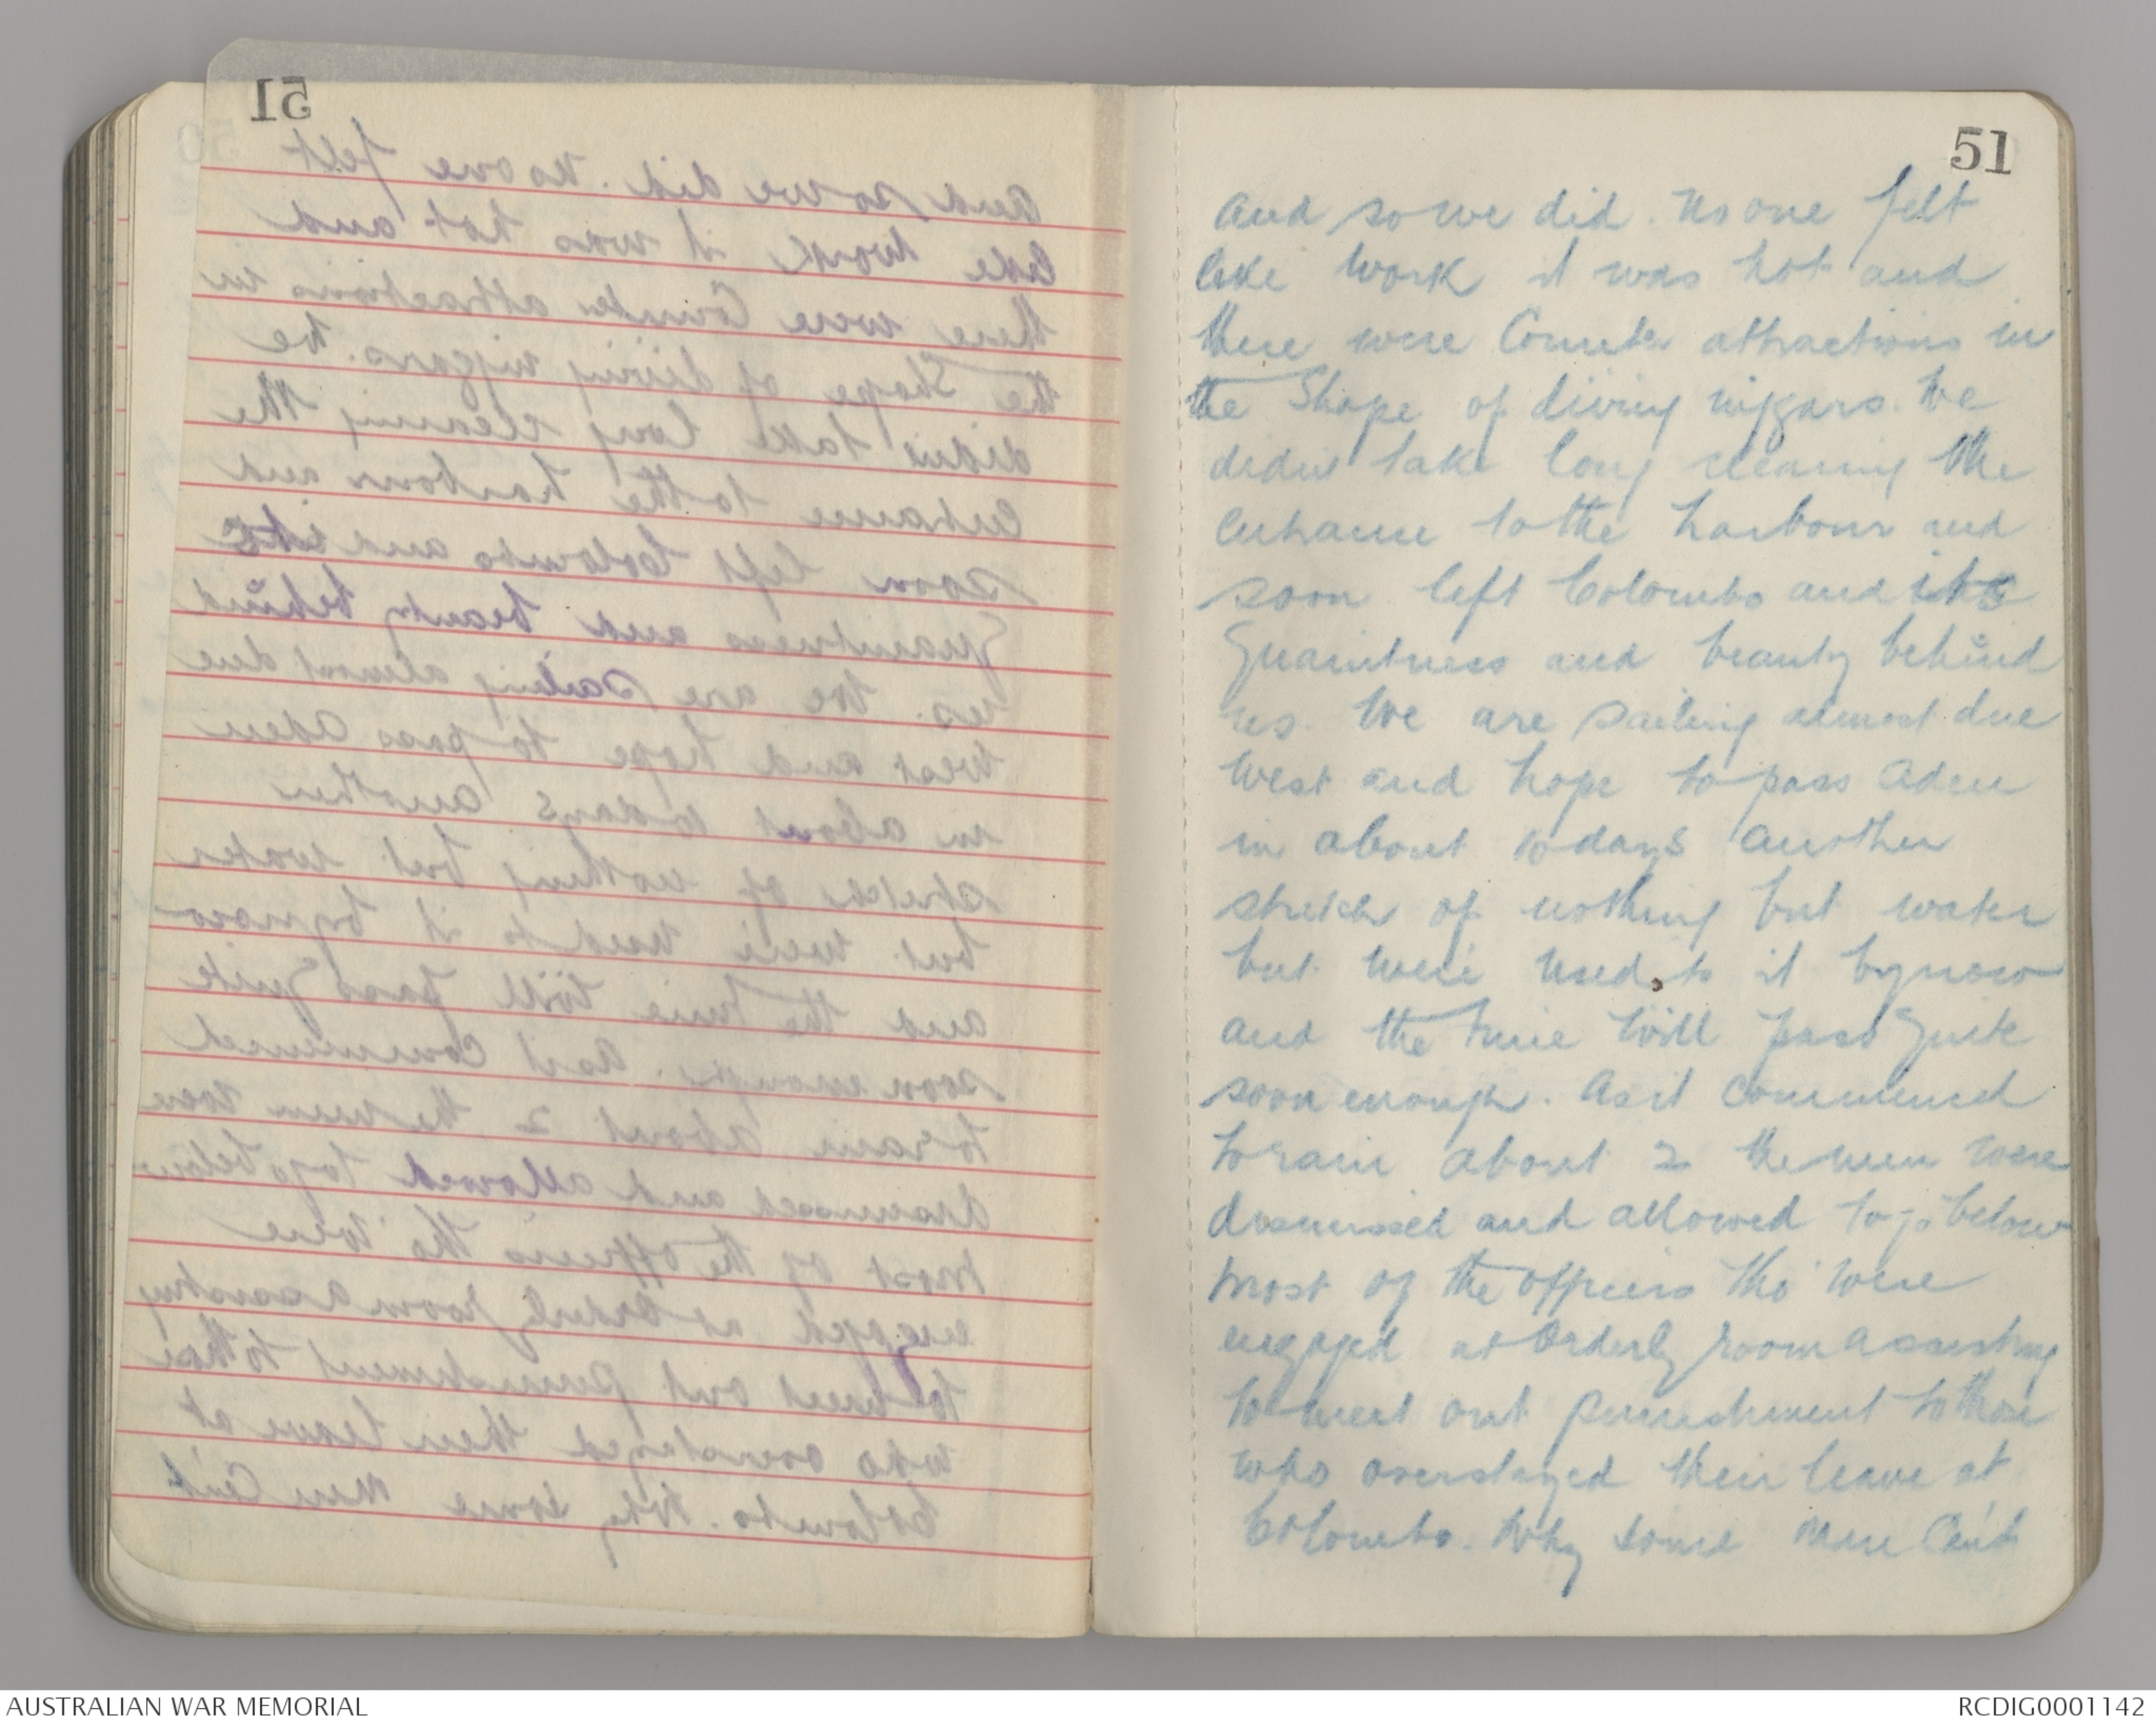 51
51
and so we did. No one felt
like work it was hot and
there were Counter attractions in
the Shape of diving niggars. We
didnt take long clearing the
entrance to the harbour and
soon left Colombo and its
Quaintness and beauty behind
us. We are sailing almost due
West and hope to pass Aden
in about 10 days another
stretch of nothing but water
but we're used to it by now
and the time will pass Quite
soon enough. As it commenced
to rain about 2 the men were
dismissed and allowed to go below
most of the officers tho' were
engaged at Orderly room assisting
to meet out punishment to those
who overstayed their leave at
Colombo. Why some men Can't
AUSTRALIAN WAR MEMORIAL
RCDIG0001142